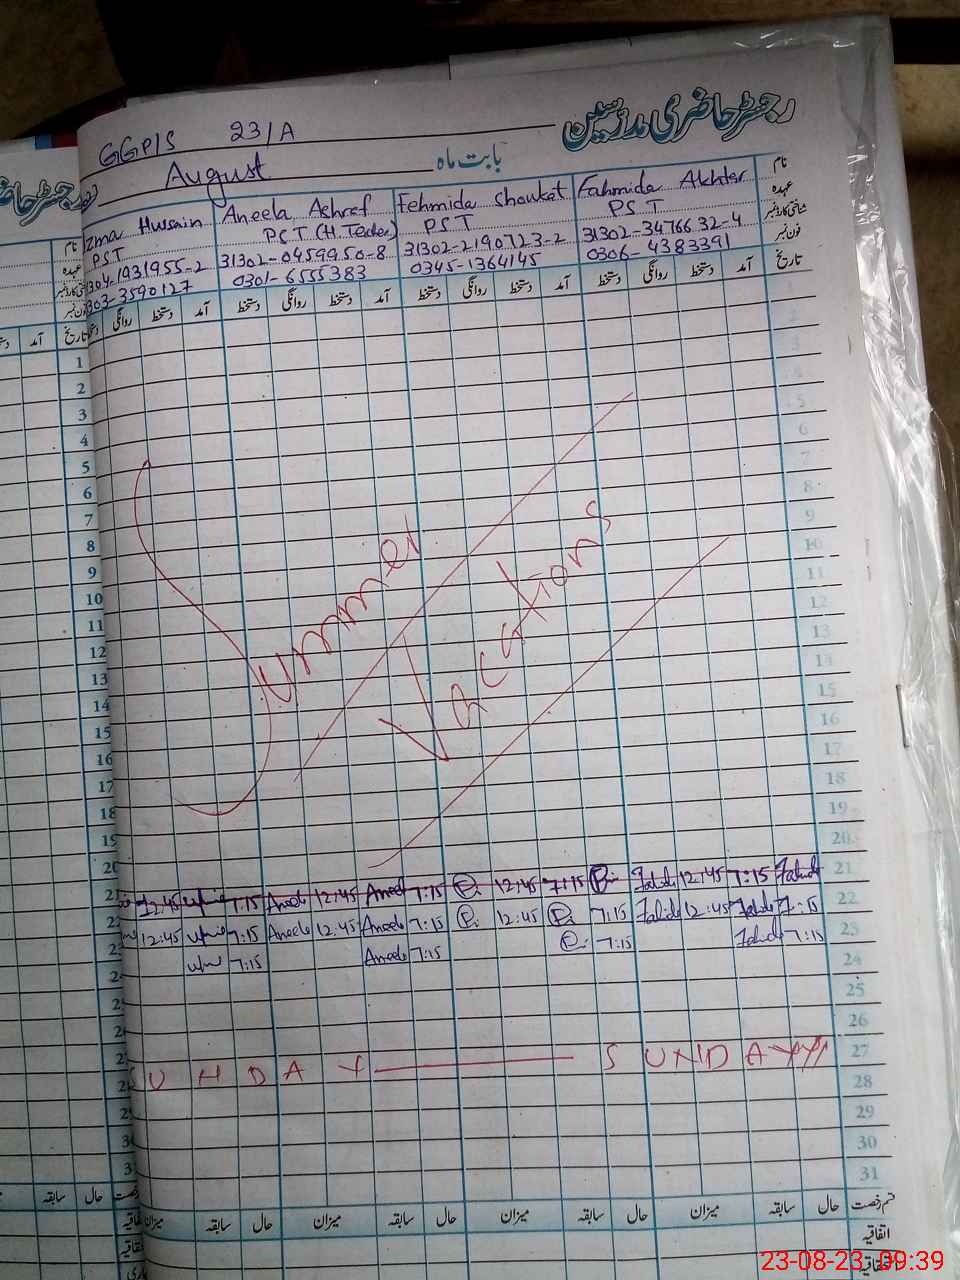 رجسٹر حاضری مدرسین
GGP/S 23/A
بابت ماہ August
نام Fahmida Akhtar Fehmida Showkat Aneela Ashraf Hussain
عہدہ PST PST PST (H. Teacher) PST
شناختی کارڈ نمبر 31302-3476632-4 31302-2190723-2 31302-0459950-8 304-1931955-2
فون نمبر 0306-4383391 0345-1364145 0301-6555383 303-3590127
تاریخ آمد دستخط روانگی دستخط آمد دستخط روانگی دستخط آمد دستخط روانگی دستخط آمد دستخط روانگی
1
2
3
4
5
6
7
8
9
10
11
12
13
14
15
16
17
18
19
20
Summer
Vacations
21 7:15 12:45 7:15 12:45 Aneela 7:15 12:45 Aneela 7:15 12:45
22 7:15 12:45 7:15 12:45 Aneela 7:15 12:45 Aneela 7:15 12:45
23 7:15 7:15 Aneela 7:15 7:15
24
25
26
27 SUNDAY SUNDAY
28
29
30
31
قسم رخصت حال سابقہ میزان حال سابقہ میزان حال سابقہ میزان حال سابقہ میزان
اتفاقیہ
23-08-23 09:39